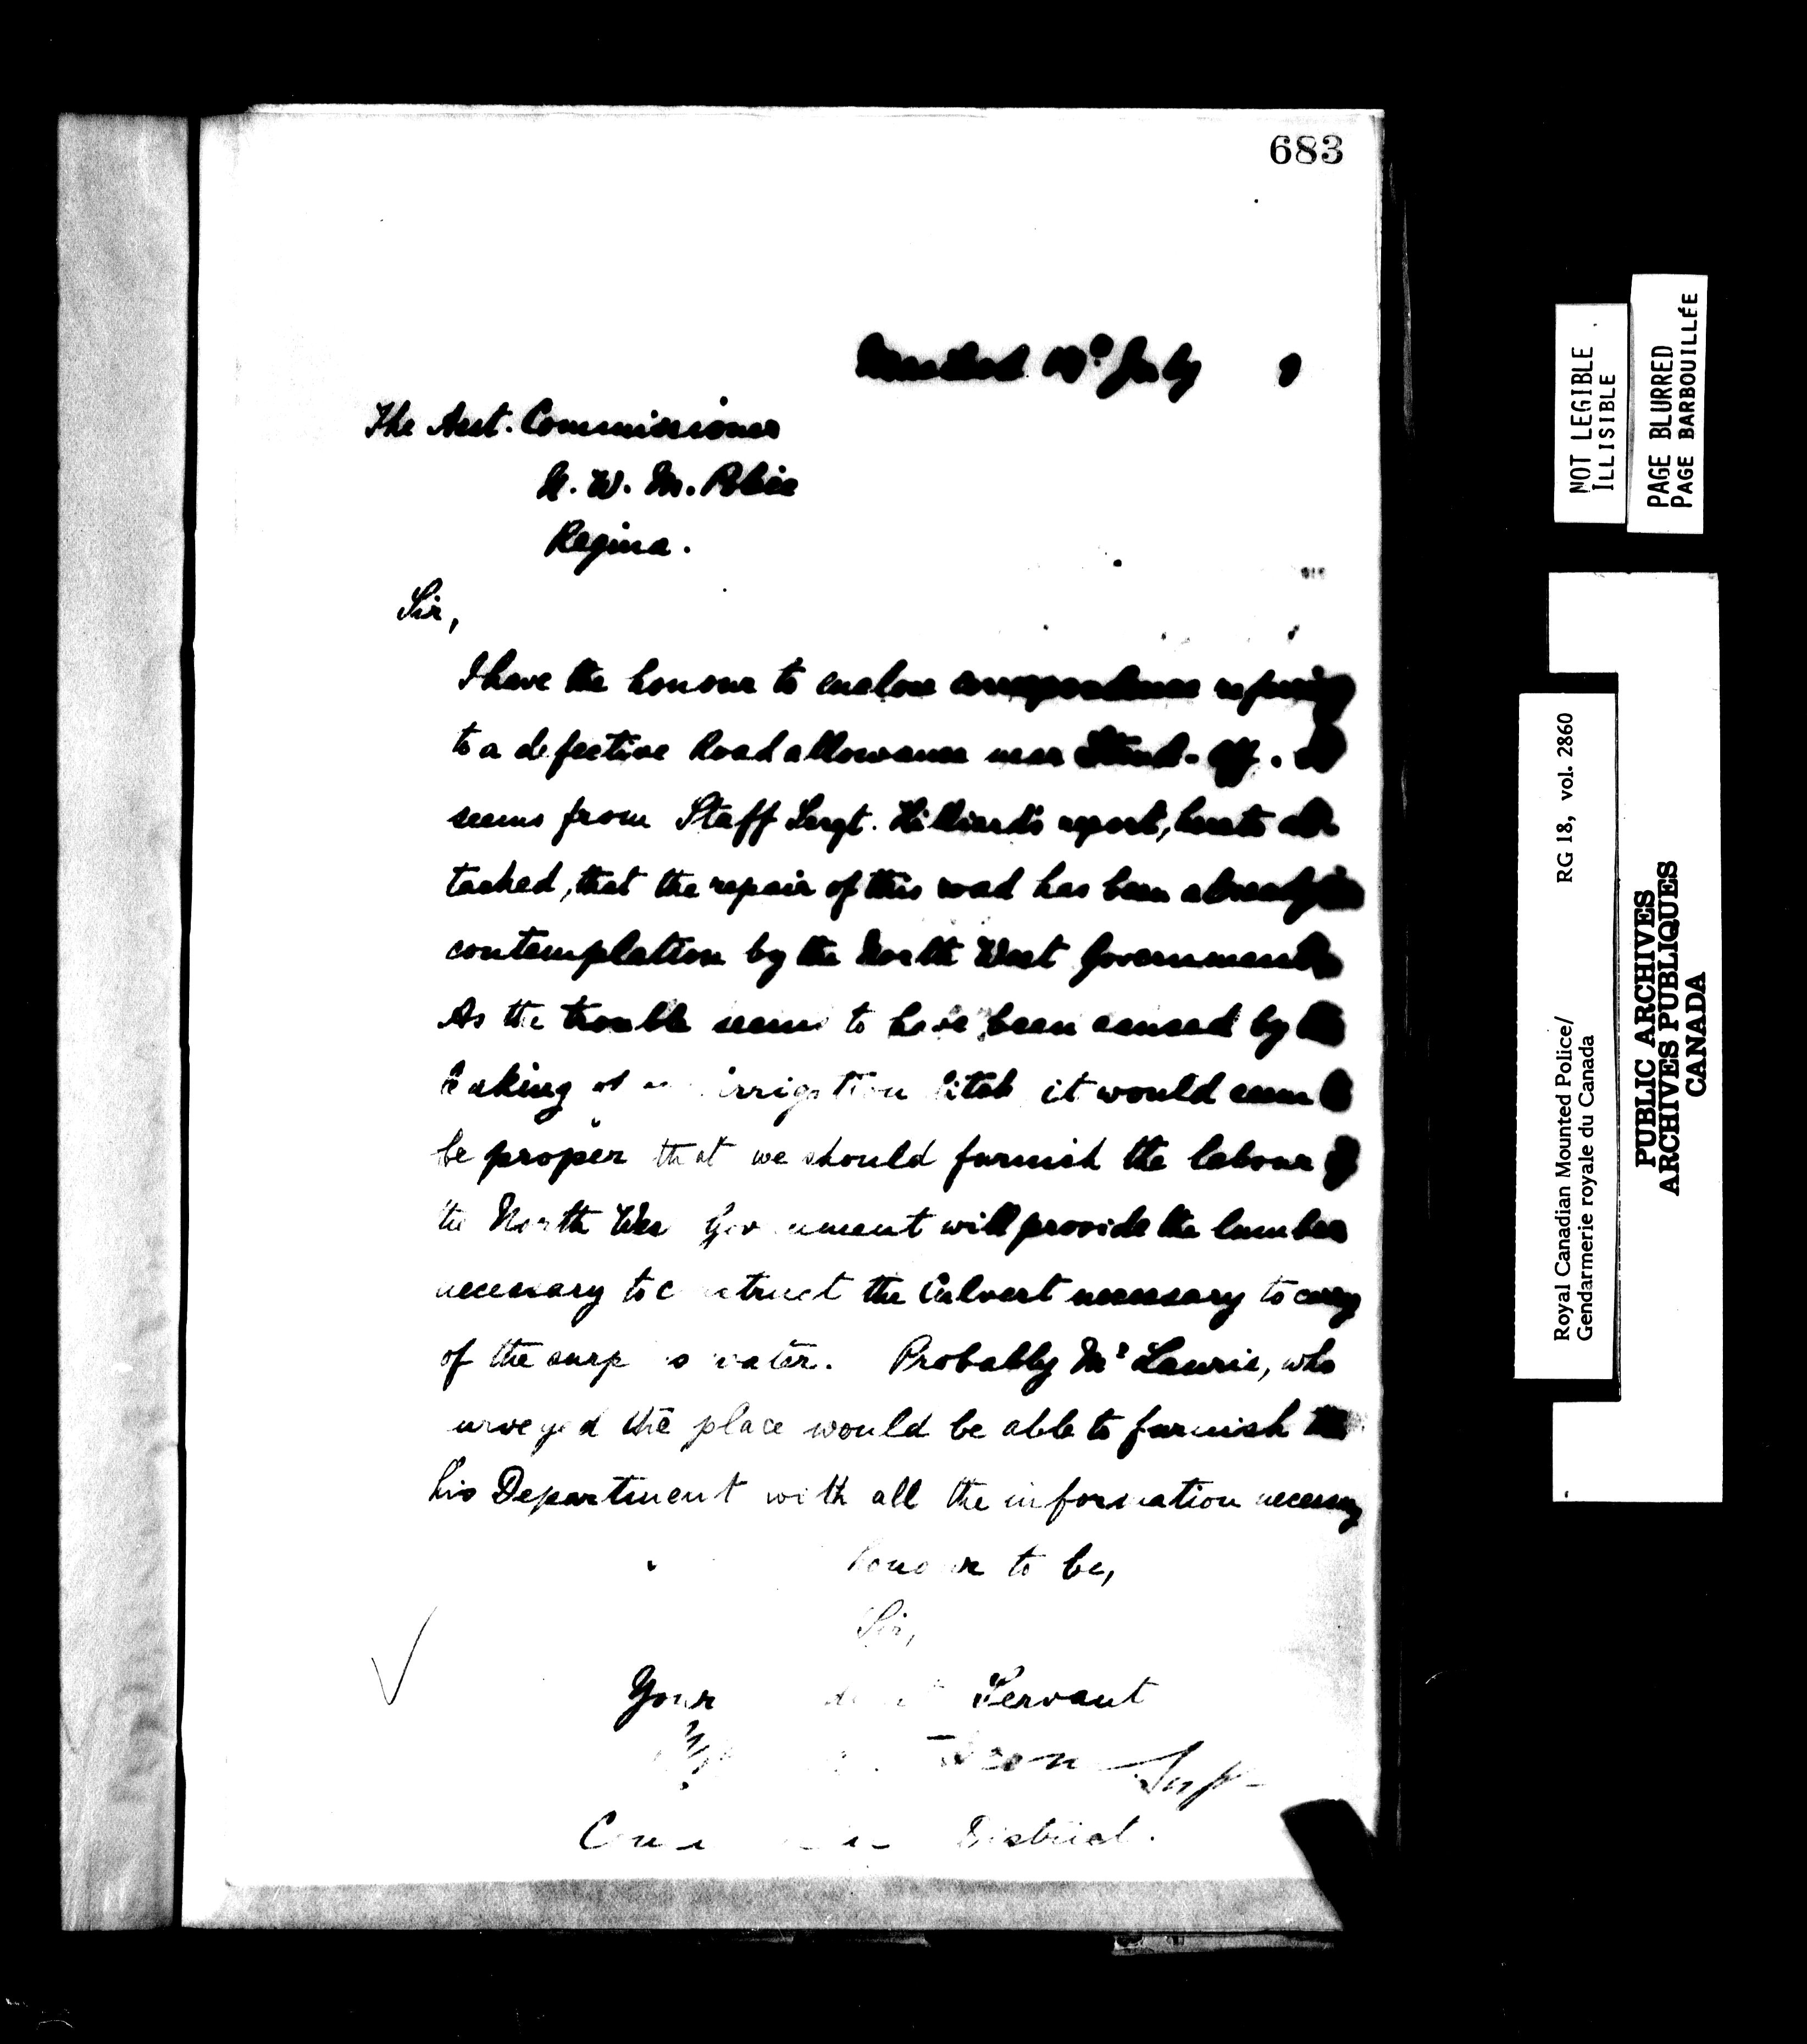 683
July
The Asst. Commissioner
N. W. M. Police
Regina.
Sir,
I have the honour to enclose correspondence referring
to a defective Road allowance near Stand-Off. It
seems from Staff Sergt. Hilliard's report, hereto at-
tached, that the repair of this road has been already in
contemplation by the North West Government
As the trouble seems to have been caused by the
leaking of an irrigation ditch it would seem to
be proper that we should furnish the labour if
the North Wes Government will provide the lumber
necessary to construct the Culvert necessary to carry
of the surplus water. Probably Mr Laurie, who
surveyed the place would be able to furnish
his Department with all the information necessary
honour to be,
Sir,
Your Servant
Supt
District.
NOT LEGIBLE
ILLISIBLE
PAGE BLURRED
PAGE BARBOUILLÉE
Royal Canadian Mounted Police/ RG 18, vol. 2860
Gendarmerie royale du Canada
PUBLIC ARCHIVES
ARCHIVES PUBLIQUES
CANADA